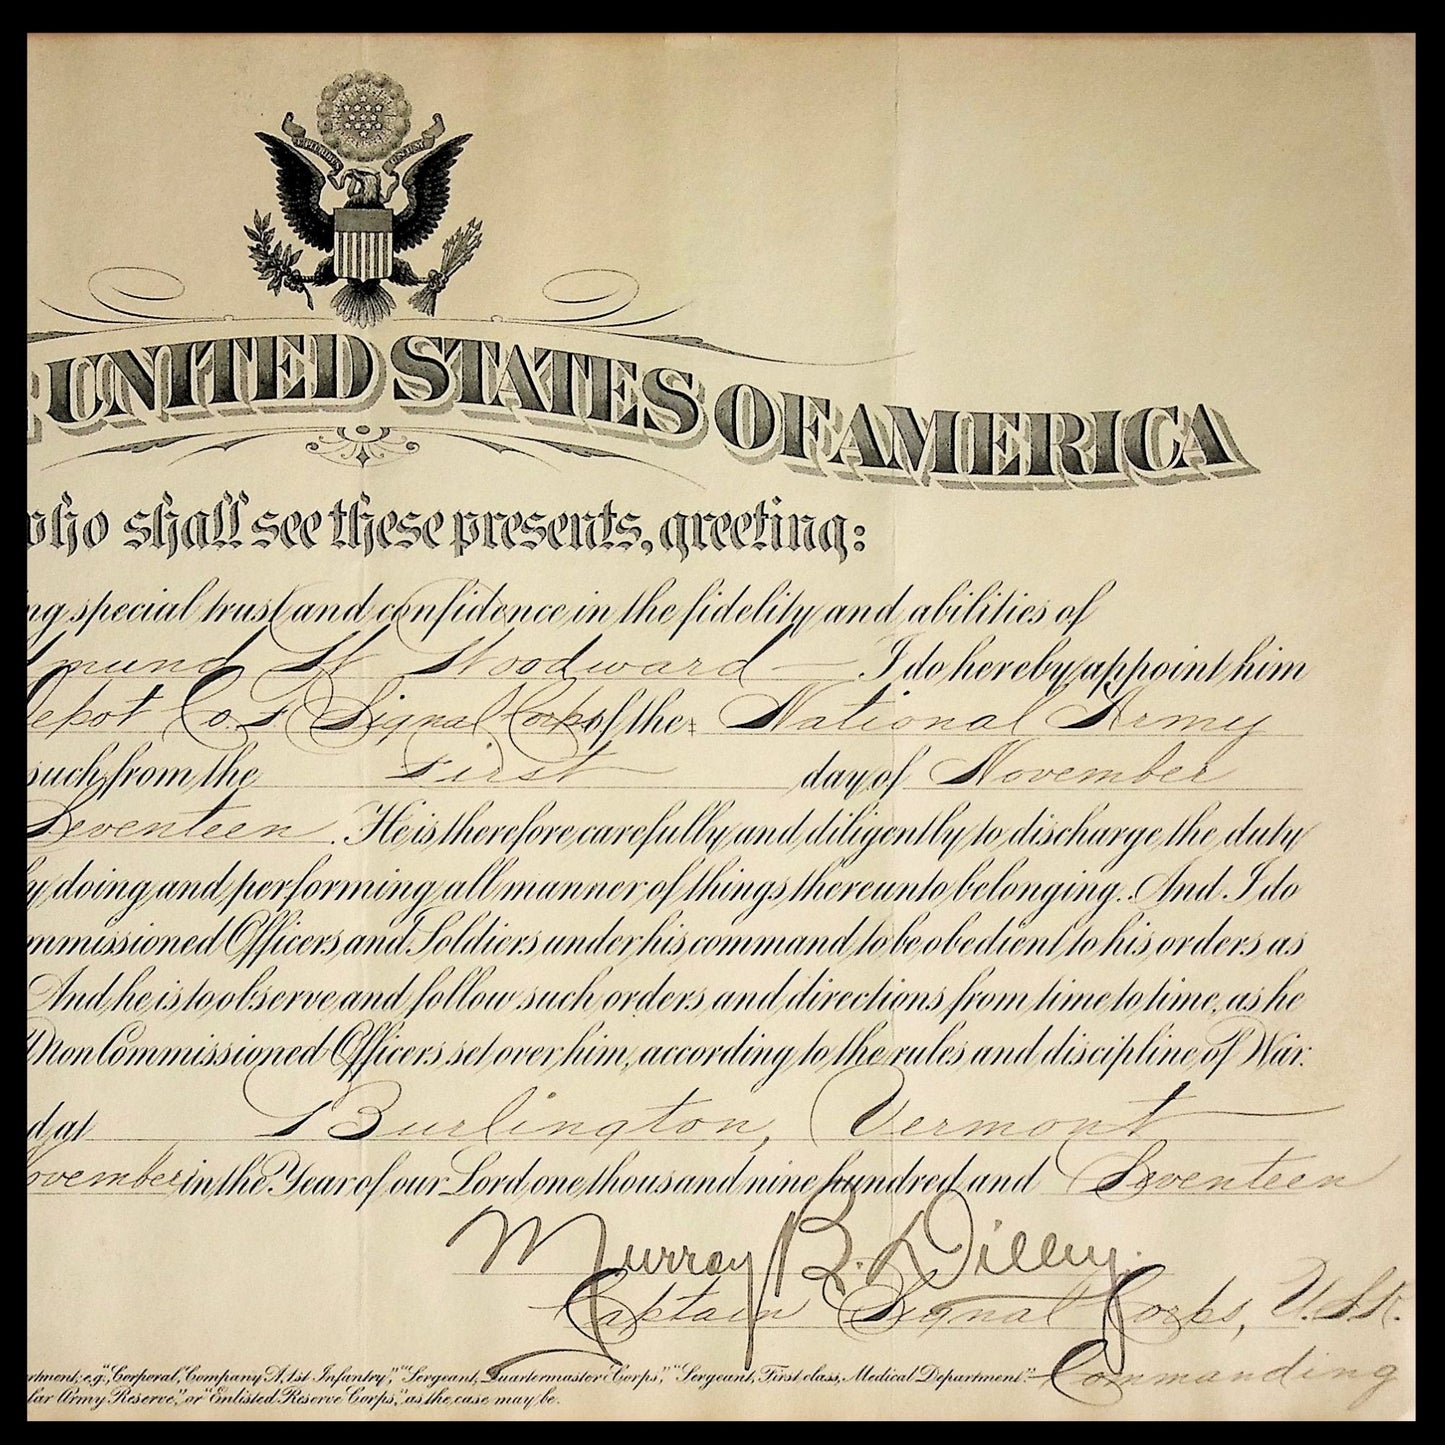 E PLURIBUS UNUM
UNITED STATES OF AMERICA
who shall see these presents, greeting:
ng special trust and confidence in the fidelity and abilities of
mund W Woodward I do hereby appoint him
Depot Co. F Signal Corps of the National Army
such from the First day of November
Seventeen. He is therefore carefully and diligently to discharge the duty
by doing and performing all manner of things thereunto belonging. And I do
mmissioned Officers and Soldiers under his command to be obedient to his orders as
And he is to observe and follow such orders and directions from time to time, as he
Non Commissioned Officers set over him, according to the rules and discipline of War.
d at Burlington, Vermont
November in the Year of our Lord one thousand nine hundred and Seventeen
Murray B. Dilley.
Captain Signal Corps, U.S.R.
Commanding
rtment; e.g., "Corporal, Company A, 1st Infantry," "Sergeant, Quartermaster Corps," "Sergeant, First class, Medical Department."
lar Army Reserve," or "Enlisted Reserve Corps," as the case may be.